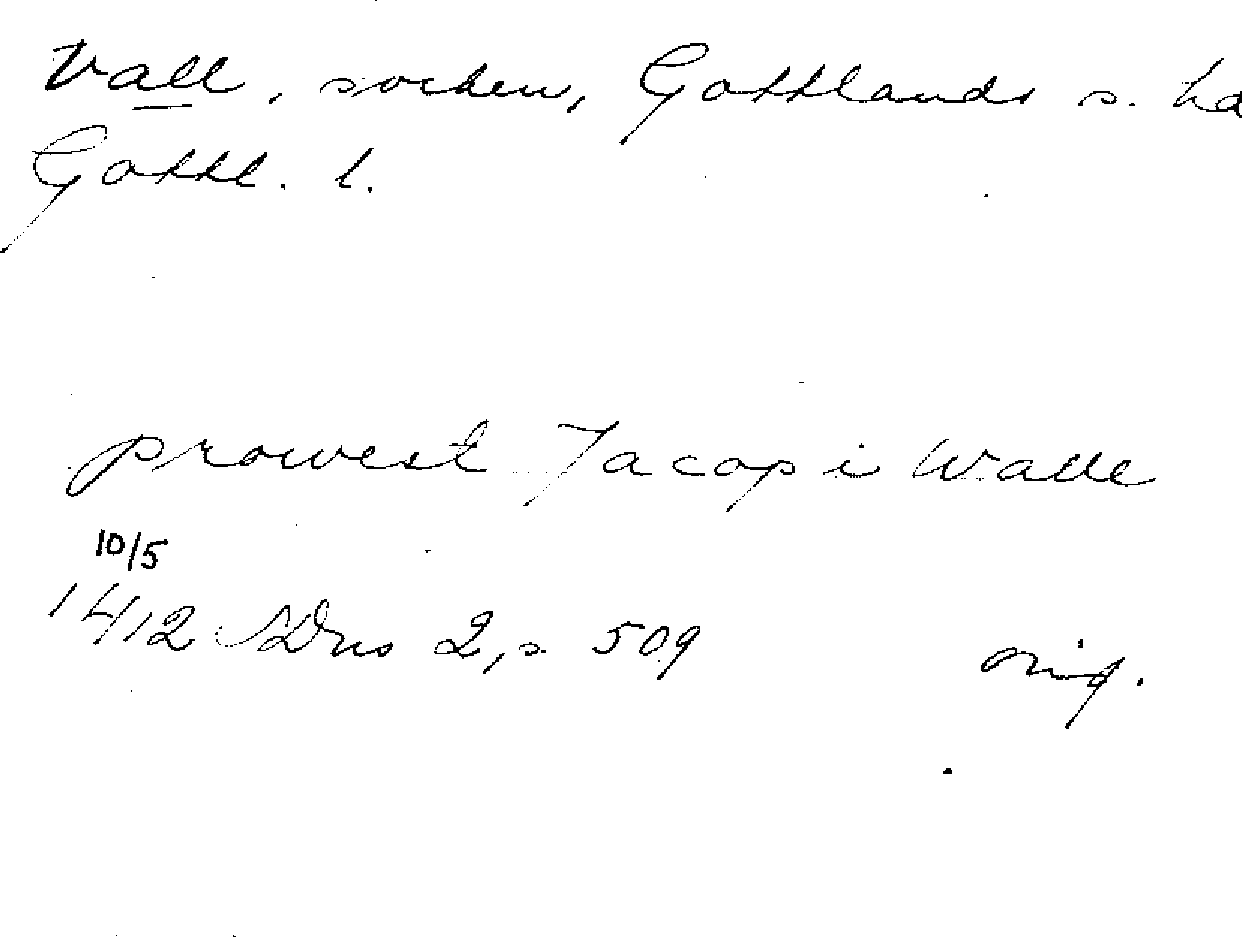 Vall, socken, Gottlands s. hd
Gottl. l.
prowest Jacop i Walle
10/5
1412 SDns 2, s. 509 orig.